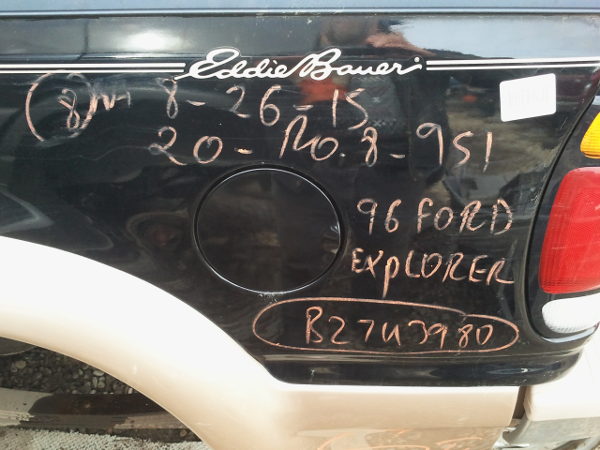 Eddie Bauer
(8) 8-26-15
20-RO.8-951
96 FORD
EXPLORER
B27U3980